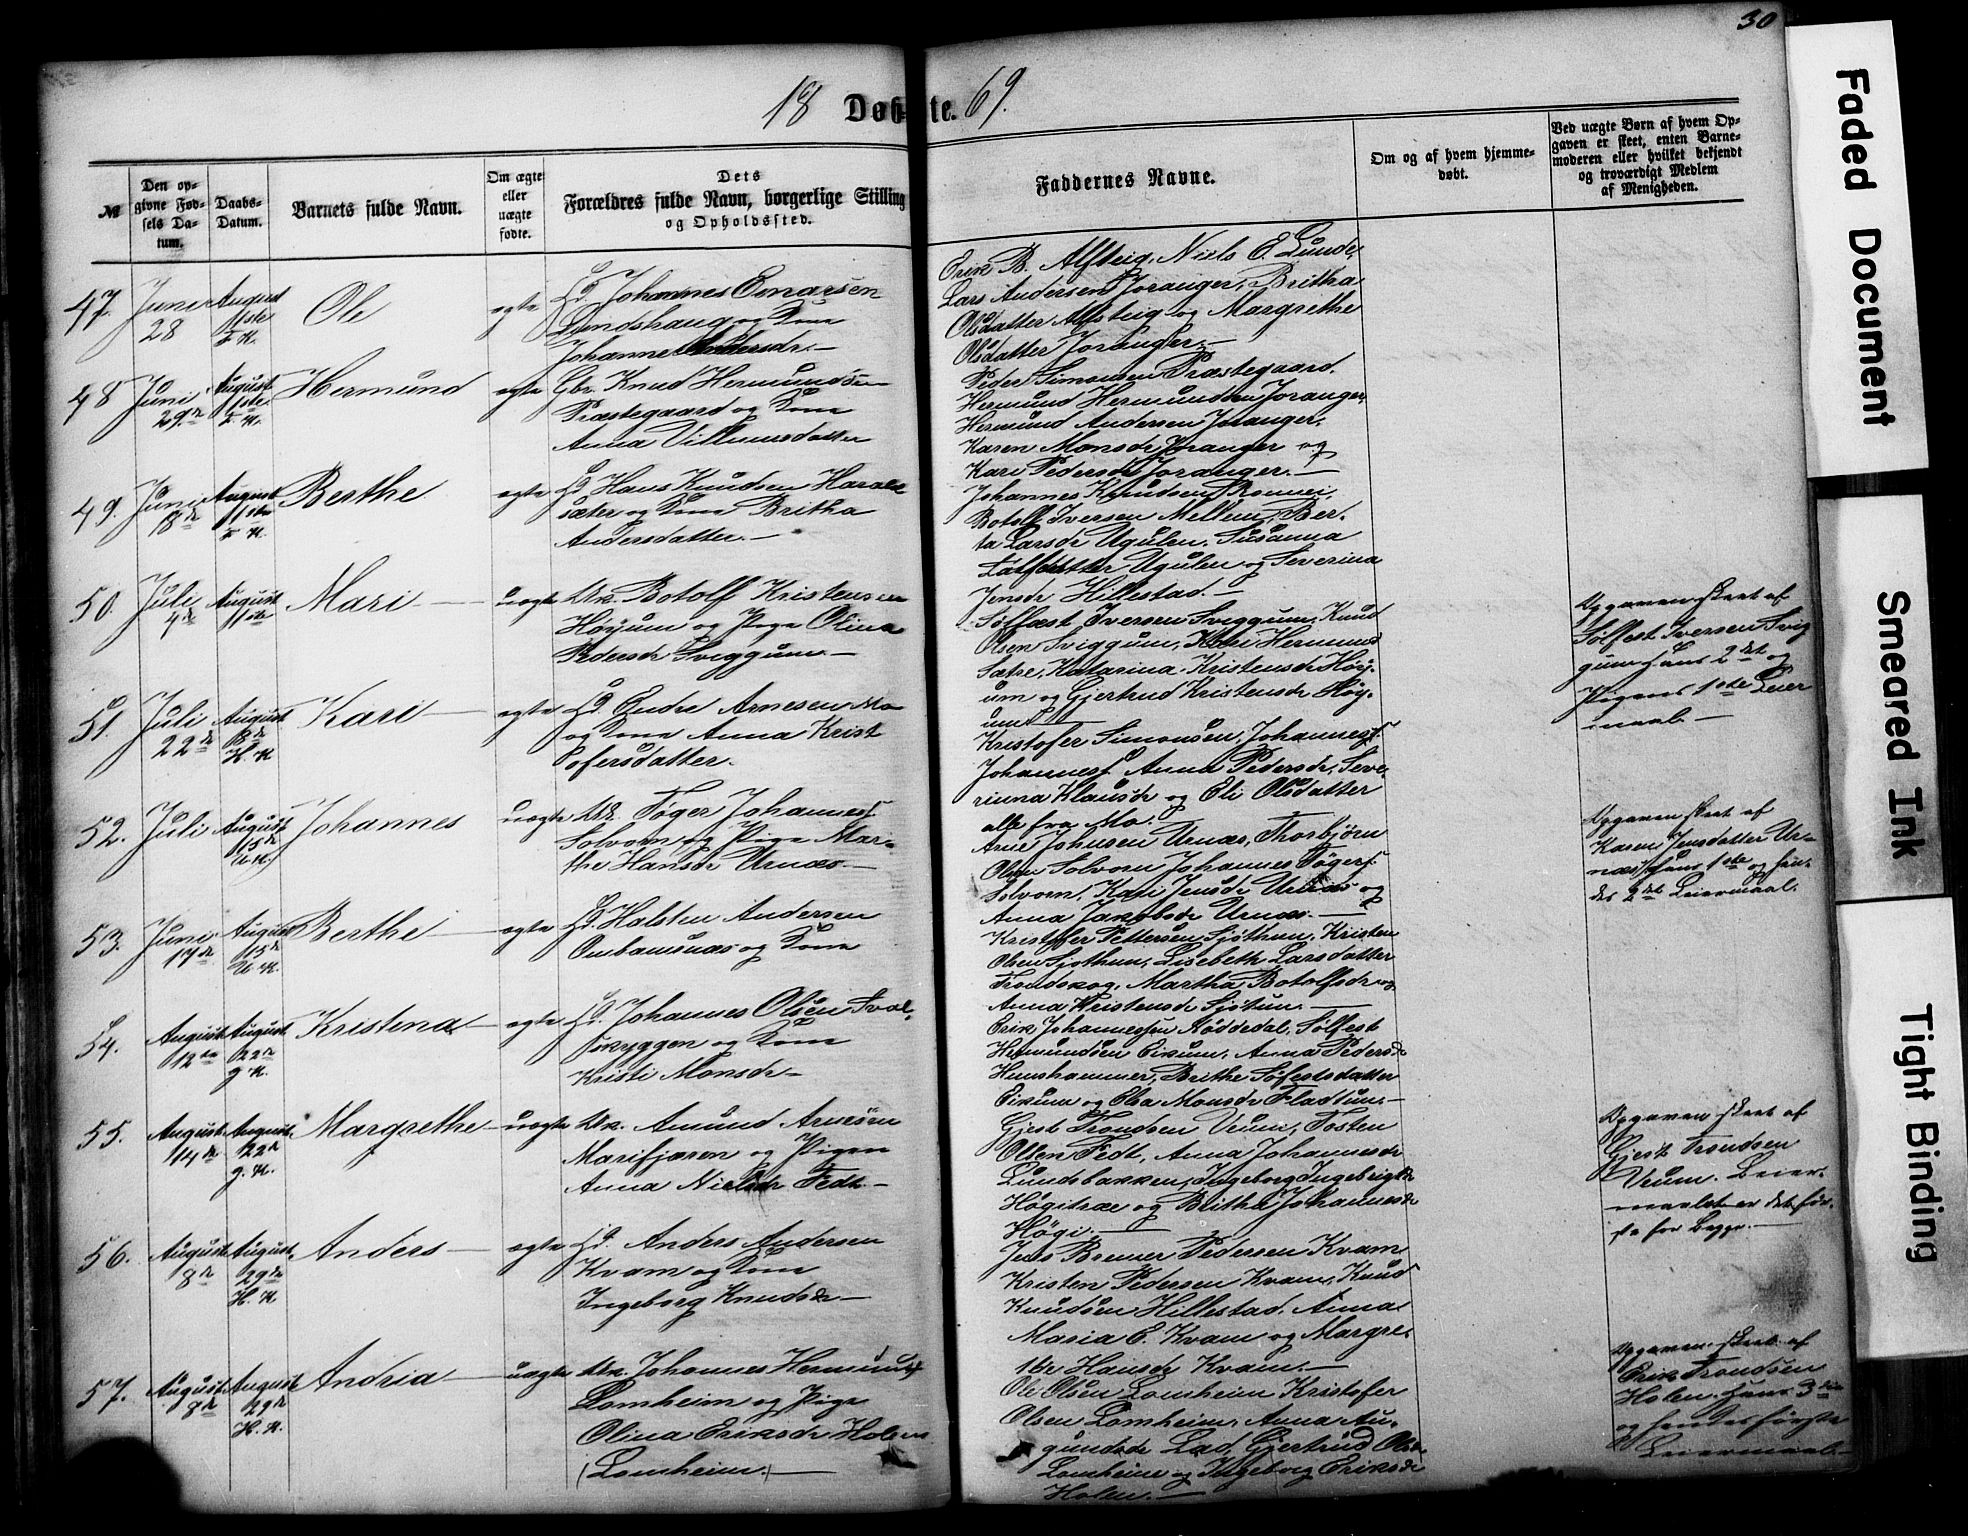 30
18 Døbte. 69.
№
Den opgivne Fødsels Datum.
Daabs-Datum.
Barnets fulde Navn.
Om ægte eller uægte fødte.
Dets Forældres fulde Navn, borgerlige Stilling og Opholdssted.
Faddernes Navne.
Om og af hvem hjemmedøbt.
Ved uægte Børn af hvem Opgaven er skeet, enten Barnemoderen eller hvilket bekjendt og troværdigt Medlem af Menigheden.
47. Juni 28 August 11ste Ole ægte Gd. Johannes Einarsen
Lundshaug og Kone
Johanne Andersdr. —
Erik B. Alsteig, Niels E. Lunde,
Lars Andersen Joranger, Britha
Olsdatter Alsteig og Margrethe
Olsdatter Joranger. —
48 Juni 29de August 11ste Hermund ægte Gbr. Knud Hermundsen
Præstegaard og Kone
Anna Villumsdatter
Peder Simonsen Præstegaard,
Hermund Hermundsen Joranger,
Hermund Andersen Joranger,
Karen Monsdr Joranger og
Kari Pedersdr Joranger. —
49. Juni 18de August 11ste Berthe ægte Gd. Hans Knudsen Harald-
sæter og Kone Britha
Andersdatter. —
Johannes Knudsen Romei,
Botolf Iversen Mellem, Ber-
ta Larsdr Ugulen, Susanna
Ugulen og Severina
Jensdr Hillestad. —
50. Juli 4de August 11ste Mari — uægte Uk. Botolf Kristensen
Høyum og Pige Olina
Pedersdr Sviggum. —
Sølfest Iversen Sviggum, Knud
Olsen Sviggum, Kari Hermund
Sætre, Katarina Kristensdr Høy-
um og Gjertrud Kristensdr Høy-
um. —
Opgaven skeet af
Sølfest Iversen Svig
gum hans 2det og
Pigens 1ste Leier
maal. —
51. Juli 22de August 13de H.K Kari — ægte Gd. Endre Arnesen Mo
og Kone Anna Krist
ofersdatter.
Kristofer Simonsen, Johannes
Johannes. Anna Pedersdr, Seve-
rinna Klausdr og Eli Olsdatter
alle fra Mo.
52. Juli August 15de U.K. Johannes uægte Uk. Tøger Johannes
Solvorn og Pige Mar-
the Hansdr Urnæs. —
Arne Johnsen Urnæs, Thorbjørn
Olsen Solvorn Johannes Tøgers.
Solvorn, Kari Jensdr Urnæs og
Anna Jakobsdr Urnæs. —
Opgaven skeet af
Karen Jensdatter Ur-
næs, hans 1ste og hen-
des 2det Leiermaal.
53. Juni 17de August 15de U.K. Berthe — ægte Gd. Halsten Andersen
Ombansnæs og Kone
Kristofer Pettersen Sjøthun, Kristen
Olsen Sjøthun, Lisebeth Larsdatter
Trondskog, Martha Botolfsdr og
Anna Kristensdr Sjøtun. —
54. August 12te August 22de g.K. Kristena — ægte Johannes Olsen Sval-
og Kone
Kristi Monsdr —
Erik Johannessen Høddedal, Sølfest
Hermundsen Eikum, Anna Pedersdr
Hunshammer, Brithe Søfestsdatter
Eikum og Elsa Monsdr Fladtun. —
55. August 14de August 22de g.K. Margrethe — uægte Uk. Amund Arnesen
Marifjæren og Pigen
Anna Nielsdr Fedt. —
Gjest Trondsen Urum, Tosten
Olsen Fedt, Anna Johannesdr
Lundsbakken, Ingeborg Ingebrigtdr
Høgitræe og Britha Johannesdr
Høgi. —
Opgaven skeet af
Gjest Trondsen
Urum. Leier-
maalet er det før-
ste for Begge. —
56. August 8de August 29de H.K Anders — ægte Gd. Anders Andersen
Kvam og Kone
Ingeborg Knudsdr —
Jens Bremer Pedersen Kvam
Kristen Pedersen Kvam, Knud
Knudsen Hillestad, Anna
Maria E. Kvam og Margre-
the Hansdr Kvam. —
57. August 8de August 29de H.K. Andria — uægte Uk. Johannes Hermunds
Lomheim og Pige
Olina Eriksdr Holen
(Lomheim) —
Ole Olsen Lomheim Kristofer
Olsen Lomheim, Anna Au-
gundsdr Lad, Gjertrud Olsdr
Lomheim og Ingeborg Eriksdr
Holen. —
Opgaven skeet af
Erik Trondsen
Holen. hans 3die
og hendes første
Leiermaal. —
Faded Document
Smeared Ink
Tight Binding